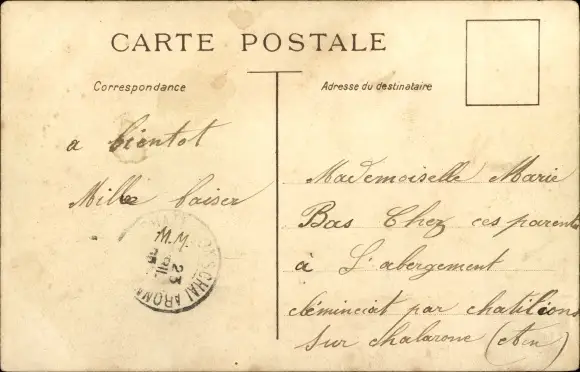 CARTE POSTALE
Correspondance
Adresse du destinataire
a bientot
Mille baiser
Mademoiselle Marie
Bas Chez ces parents
à L'abergement
cléminciat par chatillons
sur chalarone (Ain)
23
CHALARONNE